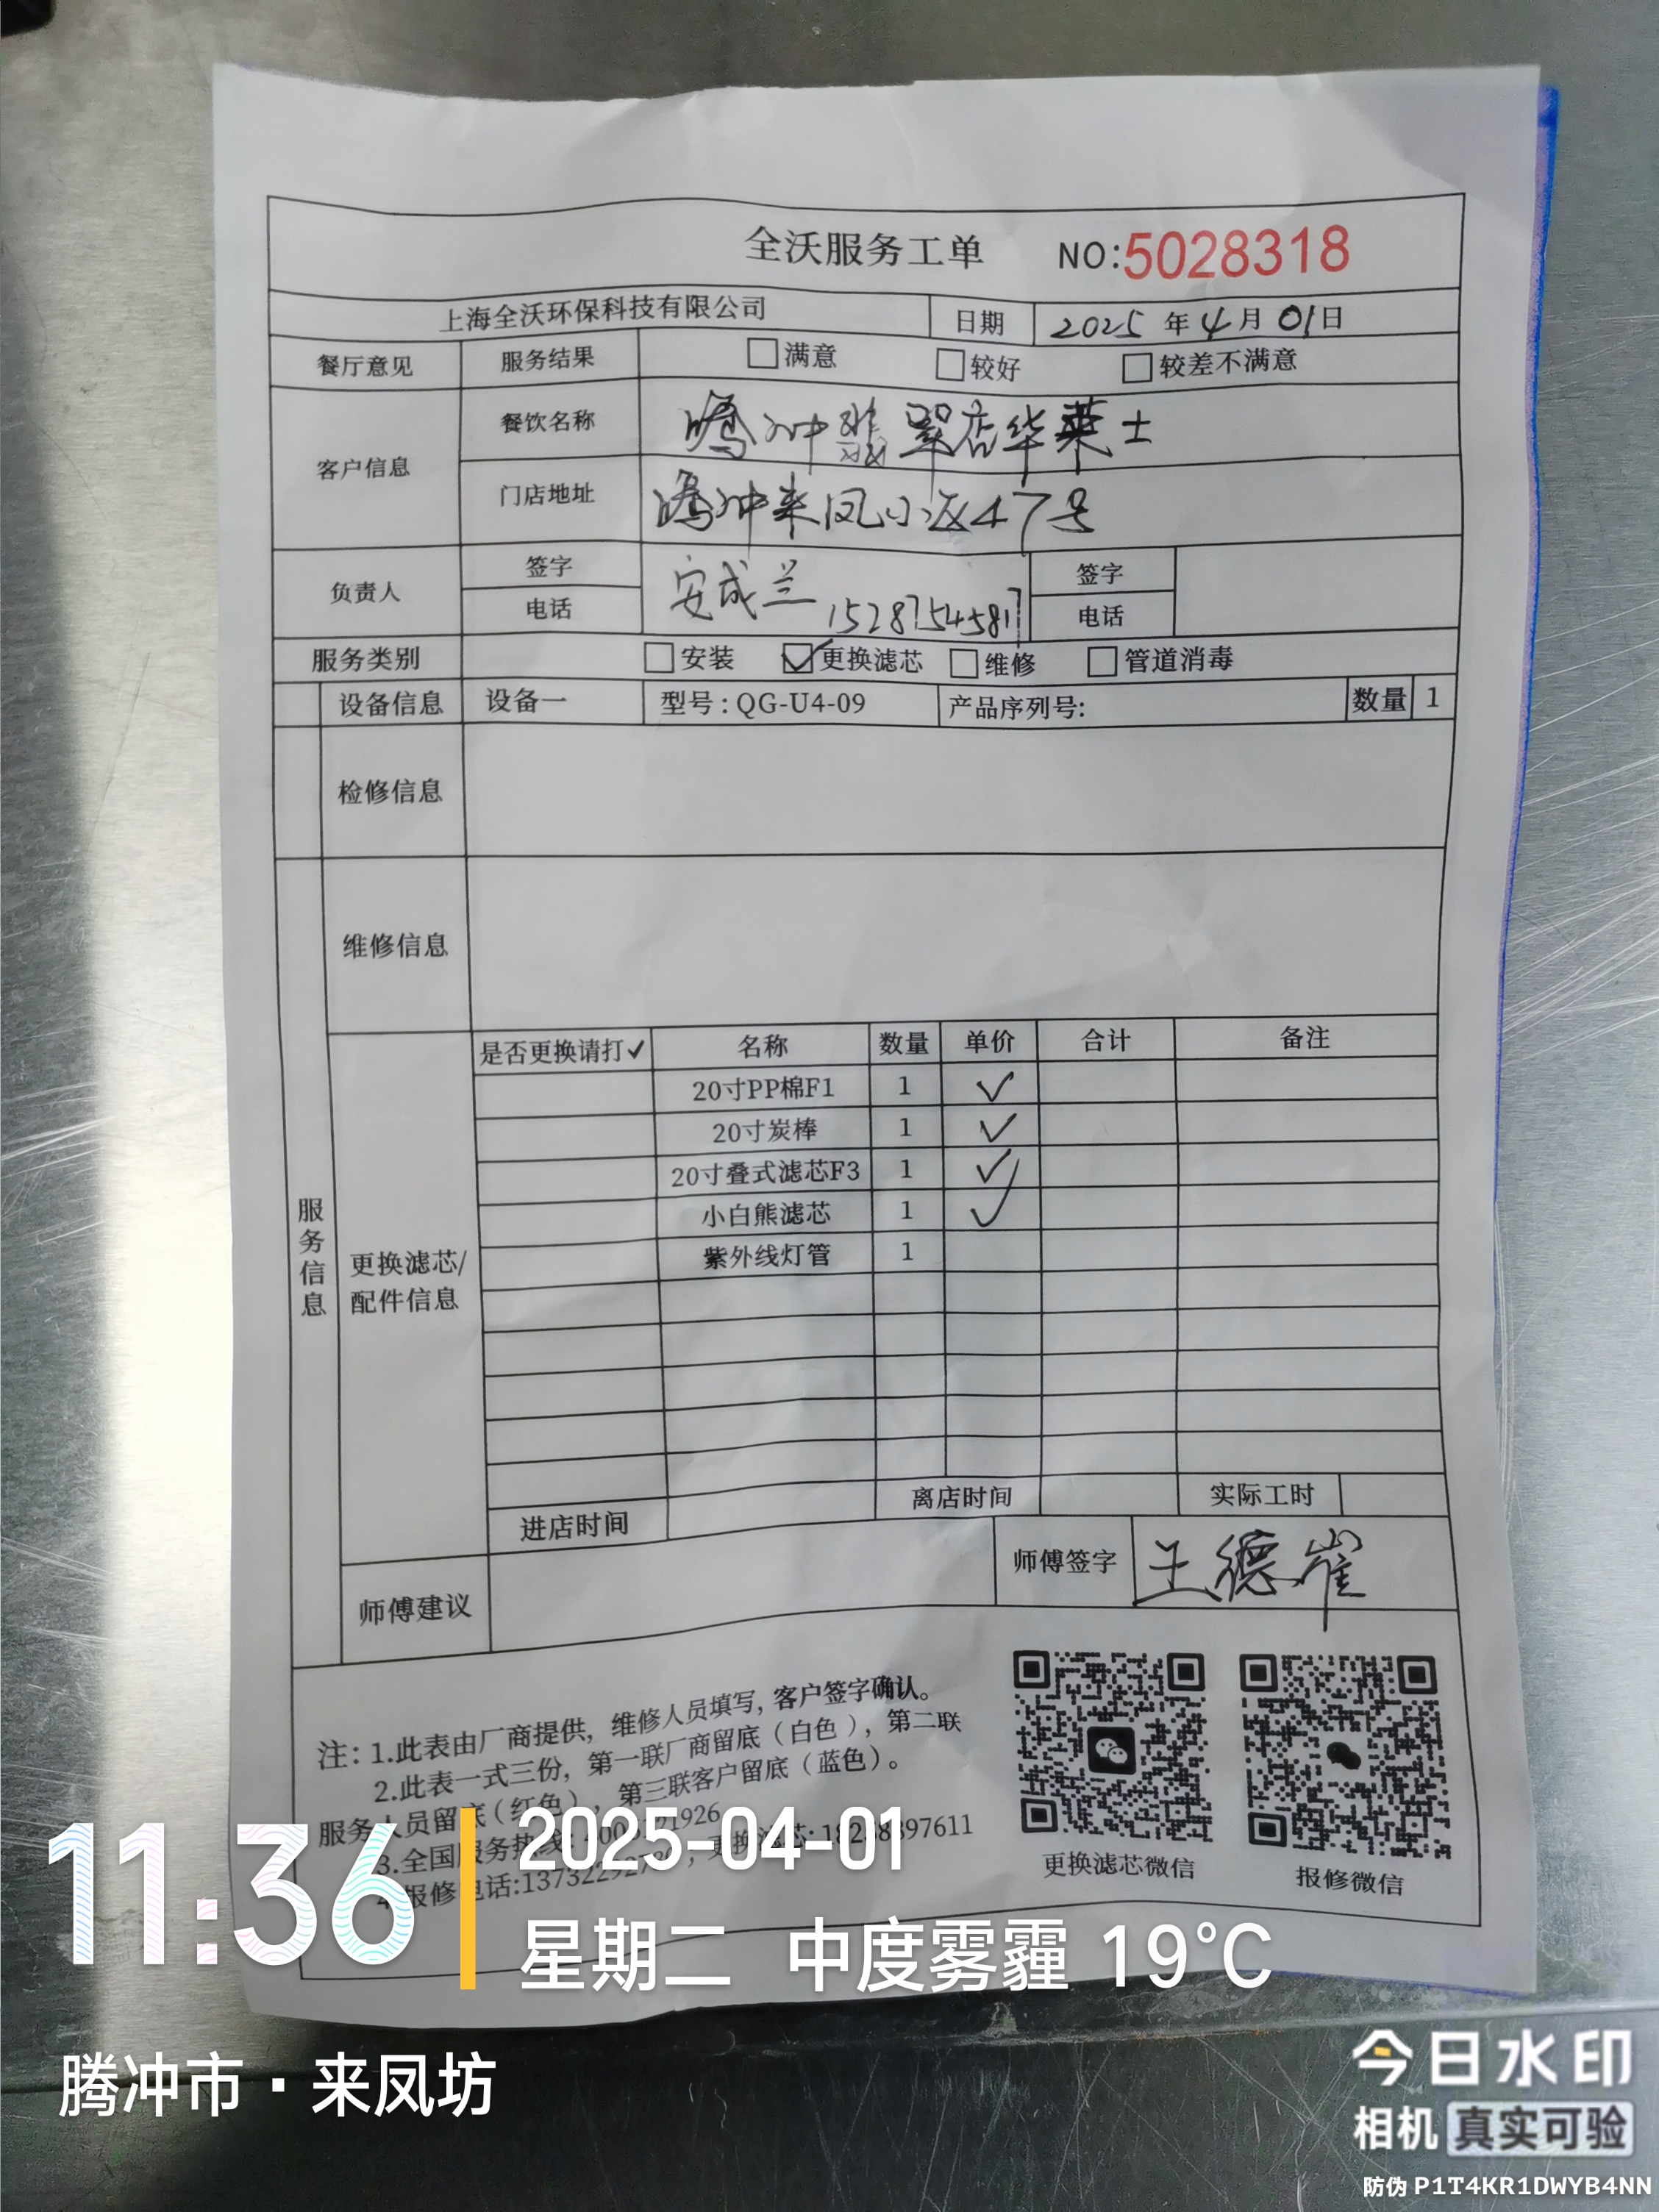 全沃服务工单 NO:5028318
上海全沃环保科技有限公司 日期 2025 年 4 月 01 日
餐厅意见 服务结果 □满意 □较好 □较差不满意
客户信息 餐饮名称 腾冲翡翠店华莱士
门店地址 腾冲来凤小区47号
负责人 签字 安成兰 签字
电话 15287545817 电话
服务类别 □安装 ☑更换滤芯 □维修 □管道消毒
设备信息 设备一 型号：QG-U4-09 产品序列号: 数量 1
检修信息
维修信息
服务信息
更换滤芯/
配件信息
是否更换请打✓ 名称 数量 单价 合计 备注
20寸PP棉F1 1 ✓
20寸炭棒 1 ✓
20寸叠式滤芯F3 1 ✓
小白熊滤芯 1 ✓
紫外线灯管 1
进店时间 离店时间 实际工时
师傅建议 师傅签字 王德崔
注：1.此表由厂商提供，维修人员填写，客户签字确认。
2.此表一式三份，第一联厂商留底（白色），第二联
服务人员留底（红色），第三联客户留底（蓝色）。
3.全国服务热线:
报修电话: 更换滤芯:
更换滤芯微信 报修微信
11:36 2025-04-01
星期二 中度雾霾 19°C
腾冲市·来凤坊
今日水印
相机 真实可验
防伪 P1T4KR1DWYB4NN